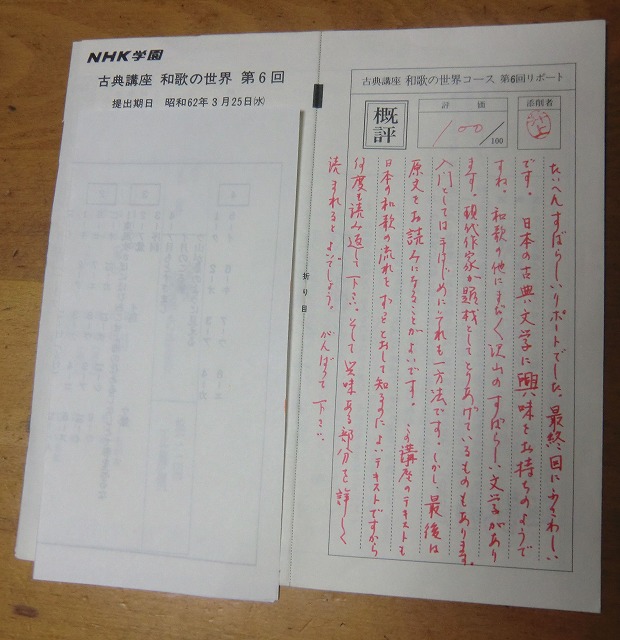 NHK学園
古典講座 和歌の世界 第6回
提出期日 昭和62年3月25日(水)
古典講座 和歌の世界コース 第6回リポート
概評
評価
100/100
添削者
折り目
たいへんすばらしいリポートでした。最終回にふさわしい
です。 日本の古典文学に興味をお持ちのようで
すね。和歌の他にもまだ沢山のすばらしい文学があり
ます。現代作家が題材としてとりあげているものもあります。
入門としては手はじめにそれも一方法です。しかし、最後は
原文をお読みになることがよいです。 この講座のテキストも
日本の和歌の流れをとおして知るのによいテキストですから
何度も読み返して下さい。そして興味ある部分を詳しく
読まれるとよいでしょう。 がんばって下さい。